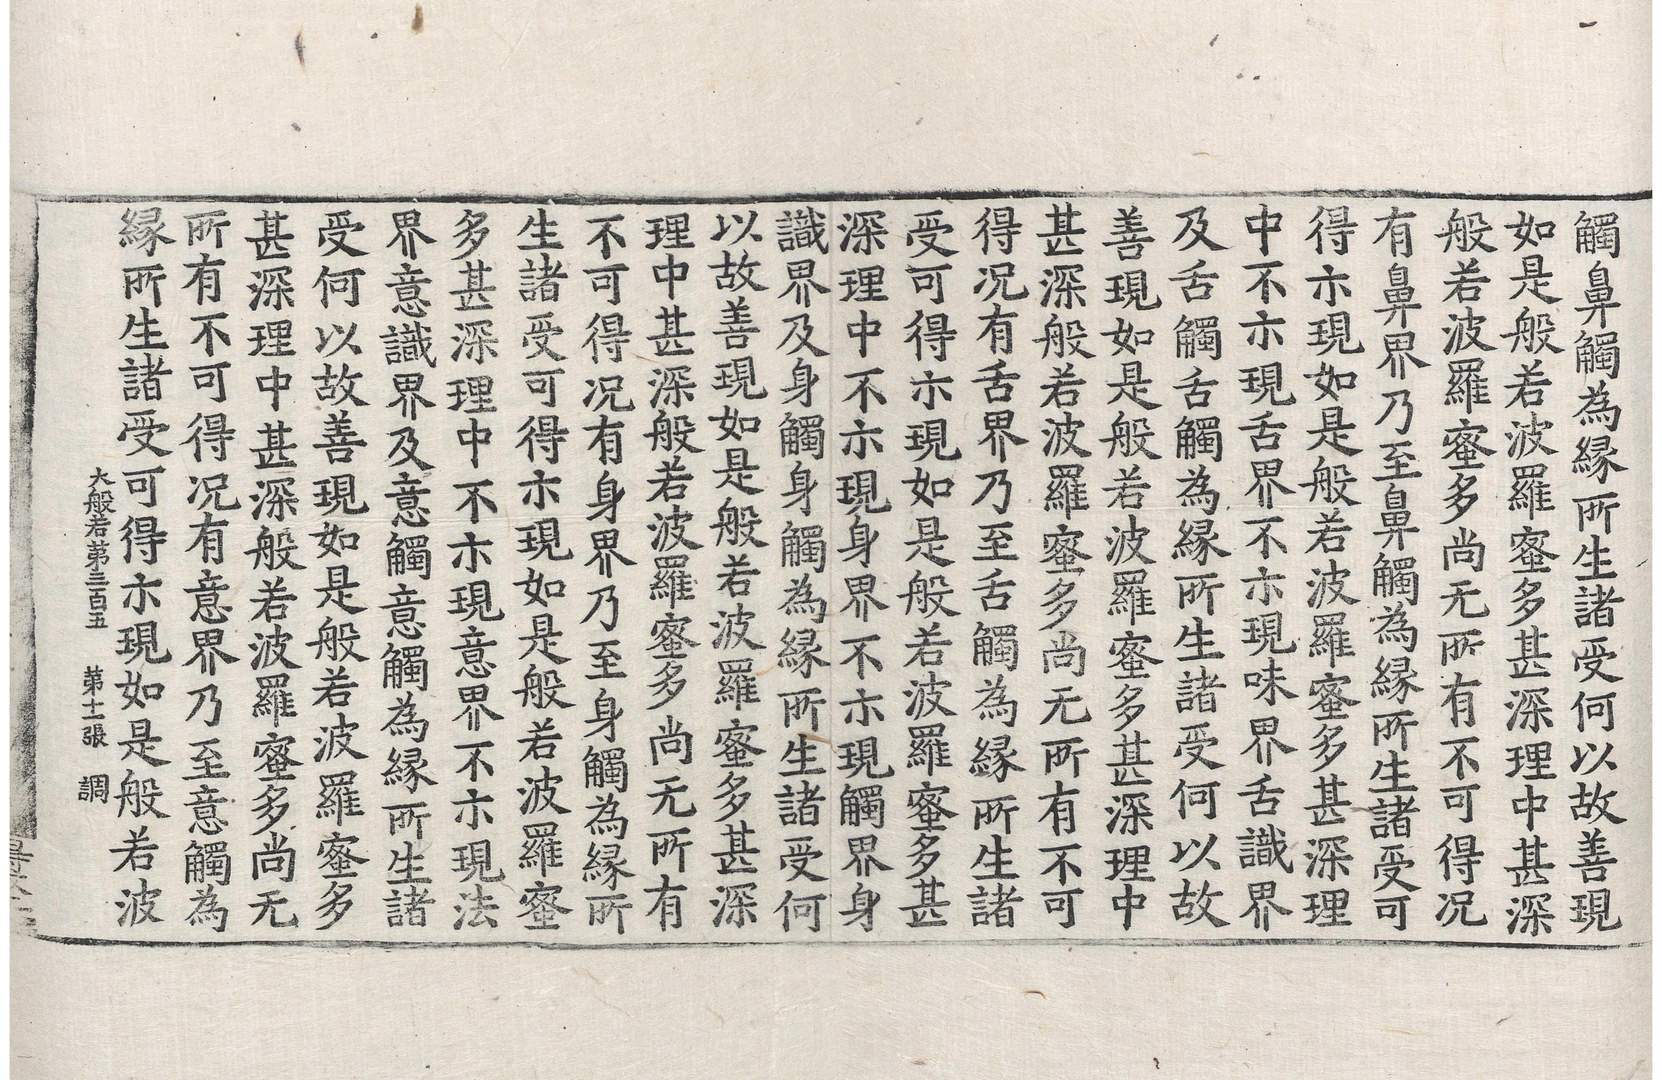 觸鼻觸為縁所生諸受何以故善現
如是般若波羅蜜多甚深理中甚深
般若波羅蜜多尚无所有不可得况
有鼻界乃至鼻觸為縁所生諸受可
得示現如是般若波羅蜜多甚深理
中不示現舌界不示現味界舌識界
及舌觸舌觸為縁所生諸受何以故
善現如是般若波羅蜜多甚深理中
甚深般若波羅蜜多尚无所有不可
得况有舌界乃至舌觸為縁所生諸
受可得示現如是般若波羅蜜多甚
深理中不示現身界不示現觸界身
識界及身觸身觸為縁所生諸受何
以故善現如是般若波羅蜜多甚深
理中甚深般若波羅蜜多尚无所有
不可得况有身界乃至身觸為縁所
生諸受可得示現如是般若波羅蜜
多甚深理中不示現意界不示現法
界意識界及意觸意觸為縁所生諸
受何以故善現如是般若波羅蜜多
甚深理中甚深般若波羅蜜多尚无
所有不可得况有意界乃至意觸為
縁所生諸受可得示現如是般若波
大般若第三百五 第十一張 調